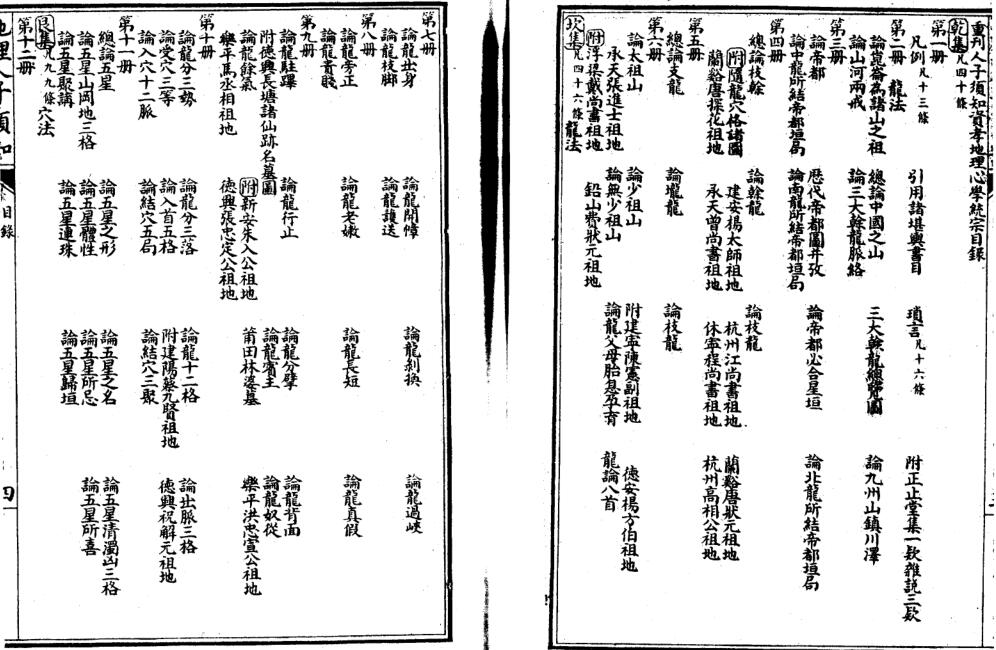 重刊人子須知資孝地理心學統宗目錄
乾集凡四十條
第一册
凡例凡十三條　引用諸堪輿書目　瑣言凡十六條　附正止堂集一欵雜說三欵
第二册　龍法
論崑崙為諸山之祖　總論中國之山　三大幹龍總覽圖　論九州山鎮川澤
論山河兩戒　論三大幹龍脈絡
第三册
論帝都　歷代帝都圖并攷　論帝都必合星垣　論北龍所結帝都垣局
論中龍所結帝都垣局　論南龍所結帝都垣局
第四册
總論枝幹　論幹龍　論枝龍
附隨龍穴格諸圖　建安楊太師祖地　杭州江尚書祖地　蘭谿唐狀元祖地
蘭谿唐探花祖地　承天曾尚書祖地　休寧程尚書祖地　杭州高相公祖地
第五册
總論支龍　論壠龍　論枝龍
第六册
論太祖山　論少祖山　附建寧陳憲副祖地　德安楊方伯祖地
承天張進士祖地　論無少祖山　論龍父母胎息孕育　龍論八首
附浮梁戴尚書祖地　鉛山費狀元祖地
坎集凡四十六條　龍法
第七册
論龍出身　論龍開幛　論龍剝換　論龍過峽
論龍枝脚　論龍護送
第八册
論龍旁正　論龍老嫩　論龍長短　論龍真假
論龍貴賤
第九册
論龍駐蹕　論龍行止　論龍分擘　論龍背面
附德興長塘諸仙跡名墓圖　論龍賓主　論龍奴從
論龍餘氣　附新安朱入公祖地　莆田林婆墓　樂平洪忠宣公祖地
樂平馬丞相祖地　德興張忠定公祖地
第十册
論龍分三勢　論龍分三落　論龍十二格　論出脈三格
論受穴三等　論入首五格　附建陽蔡九賢祖地　德興祝解元祖地
論入穴十二脈　論結穴五局　論結穴三聚
第十一册
總論五星　論五星之形　論五星之名　論五星清濁凶三格
論五星山岡地三格　論五星體性　論五星所忌　論五星所喜
論五星聚講　論五星連珠　論五星歸垣
艮集凡九九條　穴法
第十二册
地理人子須知
目錄
四